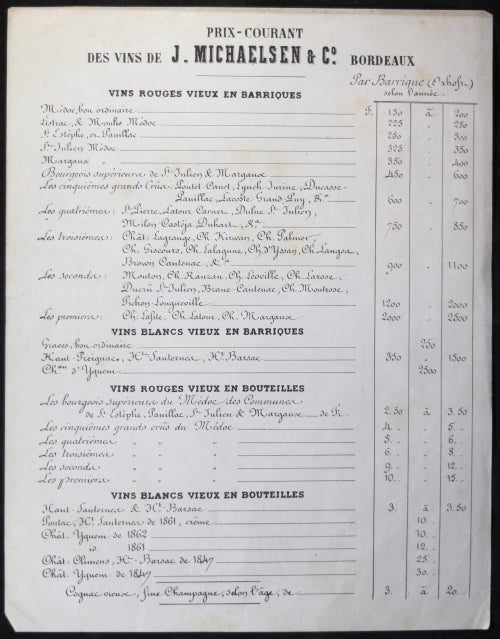 PRIX-COURANT
DES VINS DE J. MICHAELSEN & Cº. BORDEAUX
Par Barrique (Oxhoft)
selon l'année.
VINS ROUGES VIEUX EN BARRIQUES
Médoc, bon ordinaire F. 150 à 200
Listrac, & Moulis Médoc 225 " 250
St. Estèphe, et Pauillac 250 " 300
St. Julien Médoc 325 " 350
Margaux " 350 " 400
Bourgeois supérieurs de St. Julien & Margaux 450 " 600
Les cinquièmes grands Crûs: Pontet Canet, Lynch, Ducasse,
Pauillac, Lacoste Grand Puy, &a 600 " 700
Les quatrièmes: St. Pierre, Latour Carnet, Duluc St. Julien,
Milon Castéja Duhart, &a 750 " 850
Les troisièmes: Chât: Lagrange, Ch. Kirwan, Ch. Palmer,
Ch. Giscours, Ch. Lalagune, Ch. d'Yssan, Ch. Langoa,
Brown Cantenac, &a 900 " 1100
Les seconds: Mouton, Ch. Rauzan, Ch. Léoville, Ch. Larose,
Ducru St. Julien, Brane-Cantenac, Ch. Montrose,
Pichon-Longueville 1200 " 2000
Les premiers: Ch. Lafite, Ch. Latour, Ch. Margaux 2000 " 2500
VINS BLANCS VIEUX EN BARRIQUES
Graves, bon ordinaire 250
Haut-Preignac, Ht. Sauternes, Ht. Barsac 350 " 1500
Chau. d'Yquem 2500
VINS ROUGES VIEUX EN BOUTEILLES
Les bourgeois supérieurs du Médoc des Communes
de St. Estèphe, Pauillac, St. Julien & Margaux de Fr. 2.50 à 3.50
Les cinquièmes grands crûs du Médoc 4. " 5. "
Les quatrièmes " " " 5. " 6. "
Les troisièmes " " " 6. " 8. "
Les seconds " " " 9. " 12. "
Les premiers " " " 10. " 15. "
VINS BLANCS VIEUX EN BOUTEILLES
Haut Sauternes & Ht. Barsac 3. à 3.50
Pontac, Ht. Sauternes de 1861, crême 10. "
Chât. Yquem de 1862 10. "
id. 1861 12. "
Chât: Climens, Ht. Barsac de 1847 25. "
Chât. Yquem de 1847 30. "
Cognac vieux, fine Champagne, selon l'âge, de 3. à 20. "